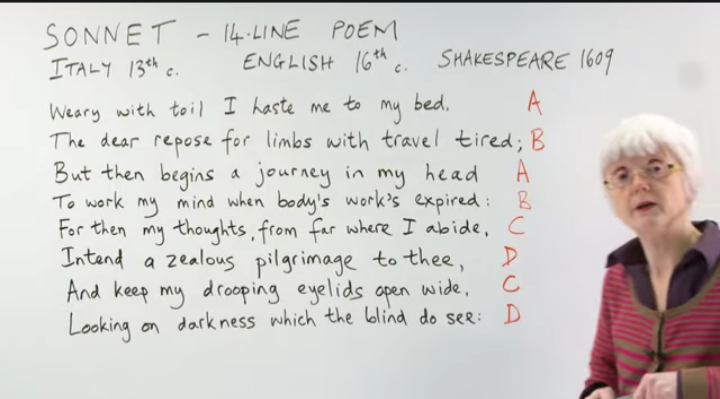 SONNET - 14-LINE POEM
ITALY 13th c. ENGLISH 16th c. SHAKESPEARE 1609
Weary with toil I haste me to my bed, A
The dear repose for limbs with travel tired; B
But then begins a journey in my head A
To work my mind when body's work's expired: B
For then my thoughts, from far where I abide, C
Intend a zealous pilgrimage to thee, D
And keep my drooping eyelids open wide, C
Looking on darkness which the blind do see: D